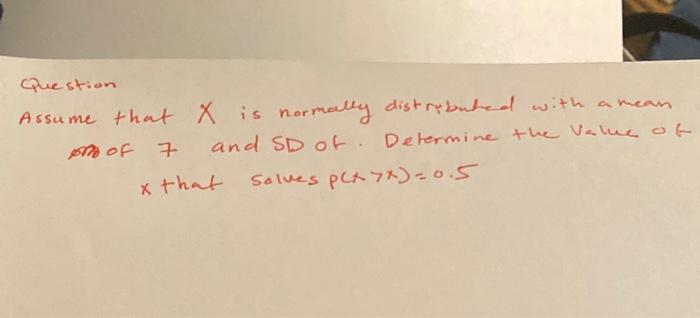 Question
Assume that X is normally distributed with a mean
of 7 and SD of. Determine the value of
x that solves p(x>x)=0.5